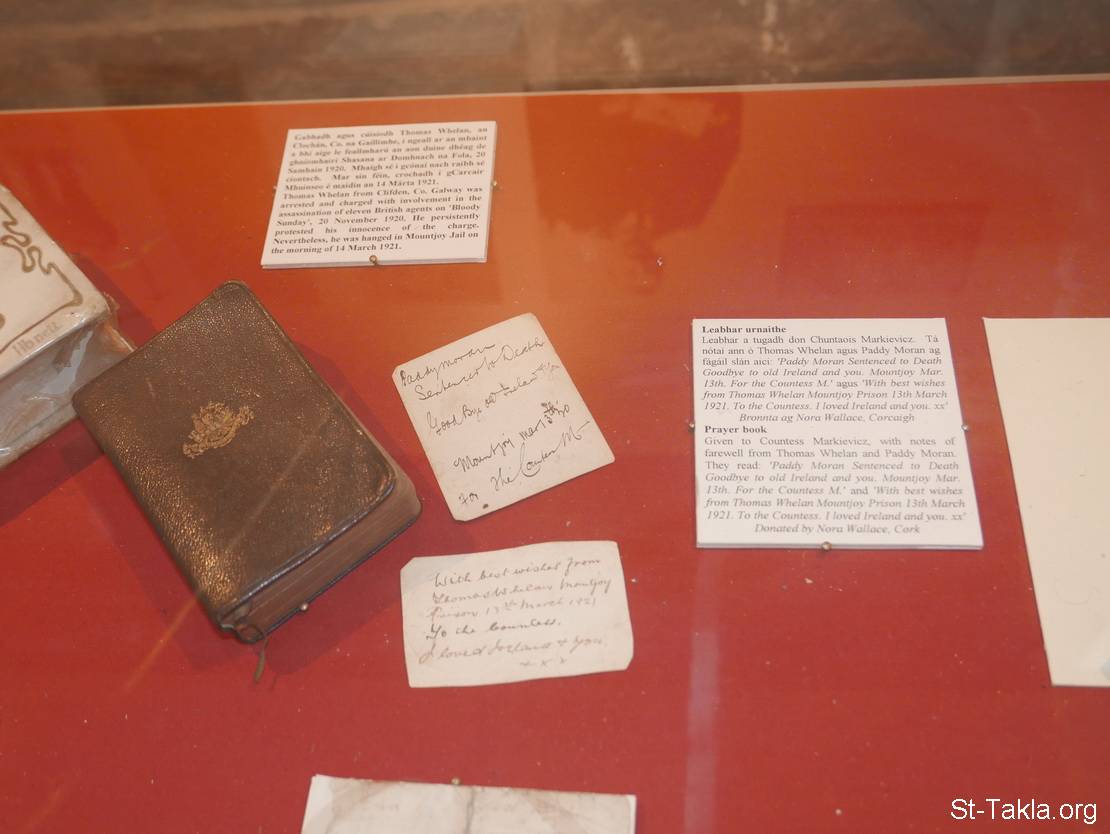 Gabhadh agus cúisíodh Thomas Whelan, an
Clochán, Co. na Gaillimhe, i ngeall ar an mbaint
a bhí aige le feallmharú an aon duine dhéag de
ghníomhairí Shasana ar Domhnach na Fola, 20
Samhain 1920. Mhaígh sé i gcónaí nach raibh sé
ciontach. Mar sin féin, crochadh i gCarcair
Mhuinseo é maidin an 14 Márta 1921.
Thomas Whelan from Clifden, Co. Galway was
arrested and charged with involvement in the
assassination of eleven British agents on 'Bloody
Sunday', 20 November 1920. He persistently
protested his innocence of the charge.
Nevertheless, he was hanged in Mountjoy Jail on
the morning of 14 March 1921.
Paddy Moran
Sentenced to Death
Good Bye old Ireland & You
Mountjoy Mar 13th
For the Countess M
With best wishes from
Thomas Whelan Mountjoy
Prison 13th March 1921
To the Countess.
I loved Ireland & You.
x x x
Leabhar urnaithe
Leabhar a tugadh don Chuntaois Markievicz. Tá
nótaí ann ó Thomas Whelan agus Paddy Moran ag
fágáil slán aici: 'Paddy Moran Sentenced to Death
Goodbye to old Ireland and you. Mountjoy Mar.
13th. For the Countess M.' agus 'With best wishes
from Thomas Whelan Mountjoy Prison 13th March
1921. To the Countess. I loved Ireland and you. xx'
Bronnta ag Nora Wallace, Corcaigh
Prayer book
Given to Countess Markievicz, with notes of
farewell from Thomas Whelan and Paddy Moran.
They read: 'Paddy Moran Sentenced to Death
Goodbye to old Ireland and you. Mountjoy Mar.
13th. For the Countess M.' and 'With best wishes
from Thomas Whelan Mountjoy Prison 13th March
1921. To the Countess. I loved Ireland and you. xx'
Donated by Nora Wallace, Cork
St-Takla.org